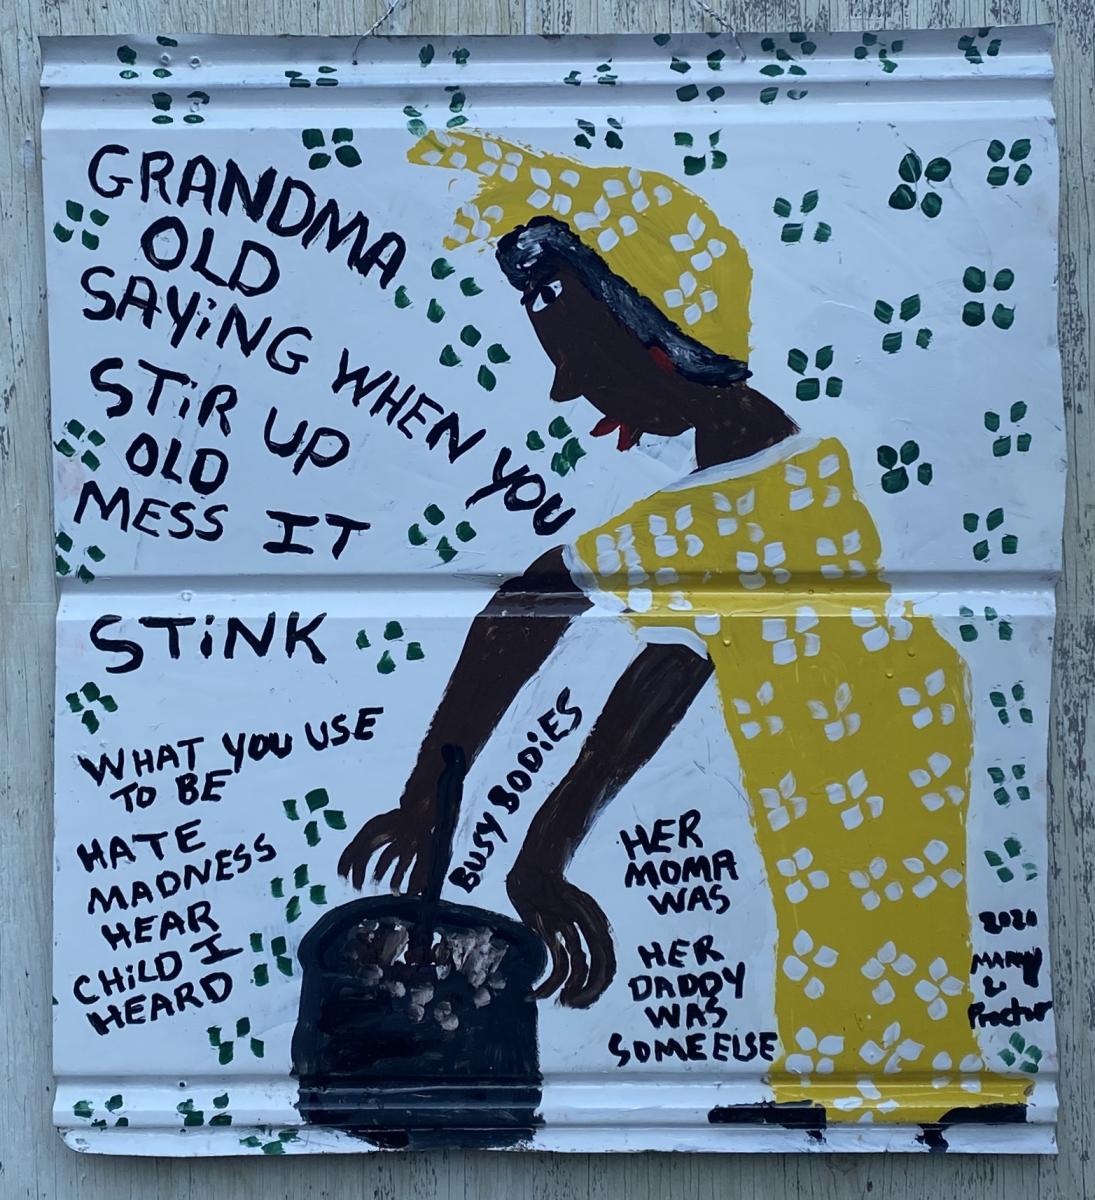 GRANDMA
OLD
SAYiNG WHEN YOU
STiR UP
OLD
MESS IT
STiNK
WHAT YOU USE
TO BE
HATE
MADNESS
HEAR
CHiLD I
HEARD
BUSY BODiES
HER
MOMA
WAS
HER
DADDY
WAS
SOMEElSE
2020
MARY
L
Proctor